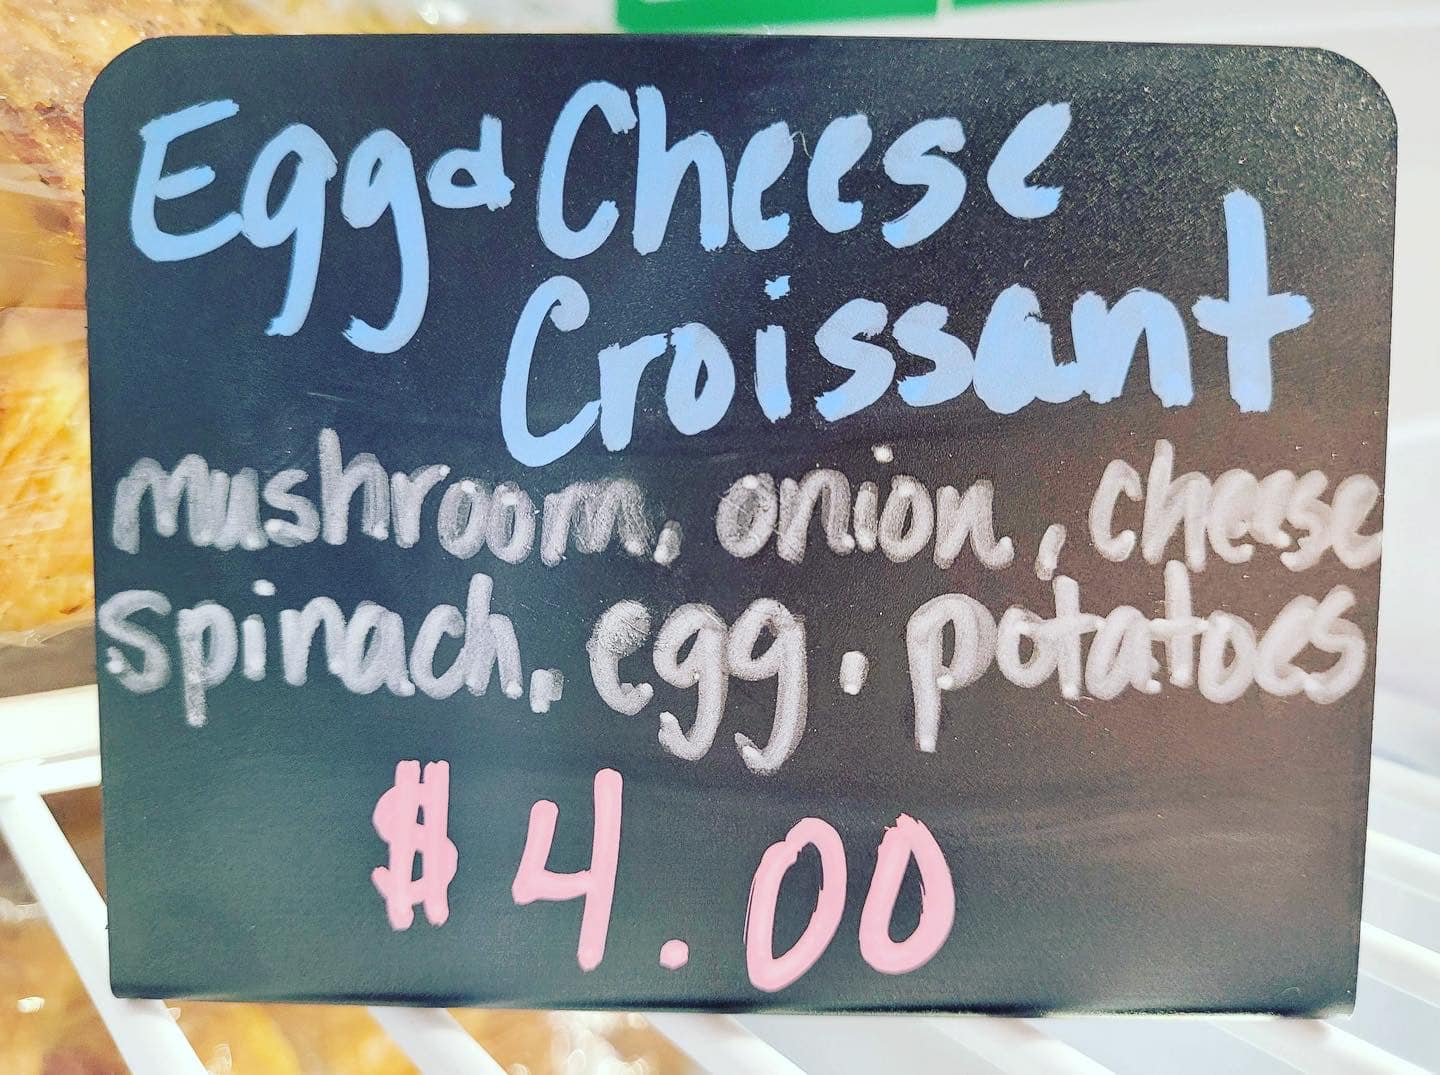 Egg & Cheese
Croissant
mushroom, onion, cheese
spinach, egg, potatoes
$4.00